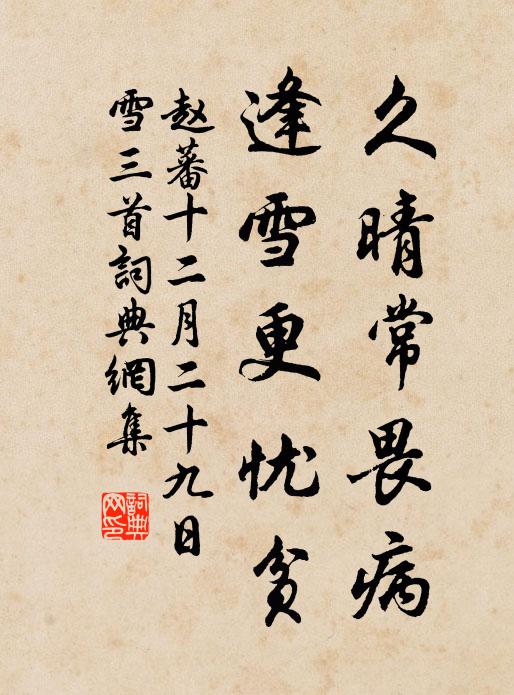 久晴常畏病
逢雪更忧贫
赵蕃十二月二十九日
雪三首詞典網集
詞典
网印